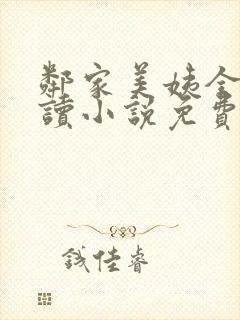 鄰家美姨全
讀小說免費
錢佳睿